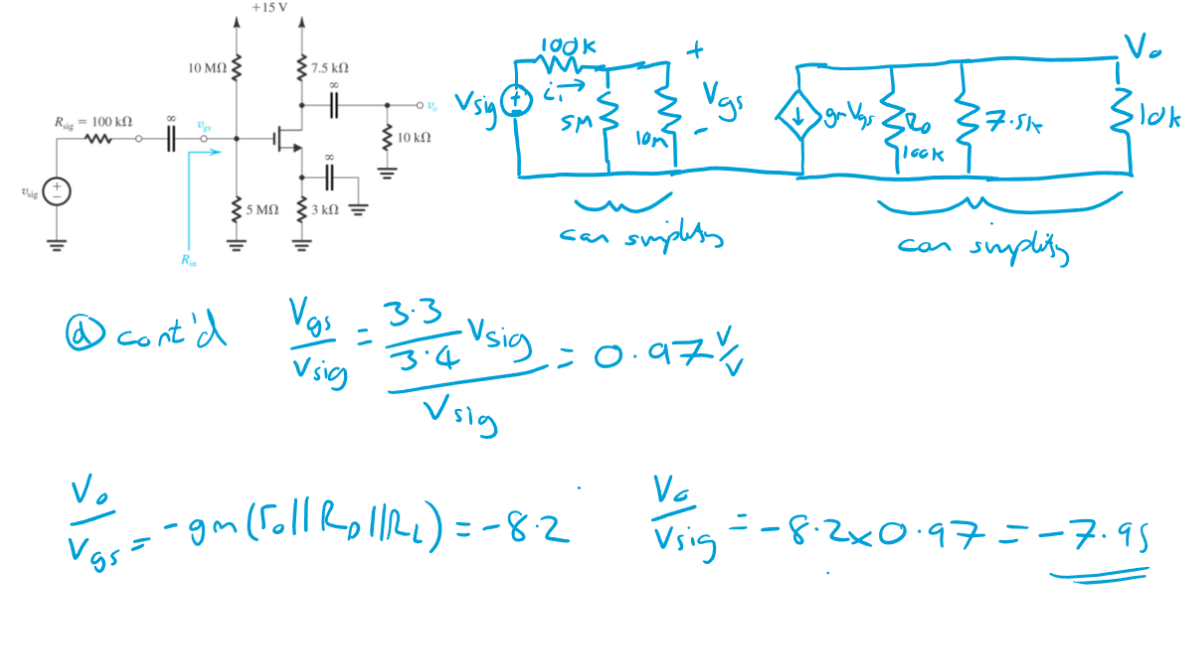 +15 V
10 MΩ
7.5 kΩ
∞
v_o
R_sig = 100 kΩ
∞
v_gs
10 kΩ
∞
v_sig
+
−
5 MΩ
3 kΩ
R_in
100k
+
V_sig
+
i,
5M
10m
V_gs
-
gmVgs
Ro
100k
7.5k
10k
Vo
can simplify
can simplify
ⓓ cont'd
Vgs/Vsig = (3.3/3.4 Vsig)/Vsig = 0.97 V/V
Vo/Vgs = -gm(ro||RD||RL) = -8.2
Vo/Vsig = -8.2x0.97 = -7.95